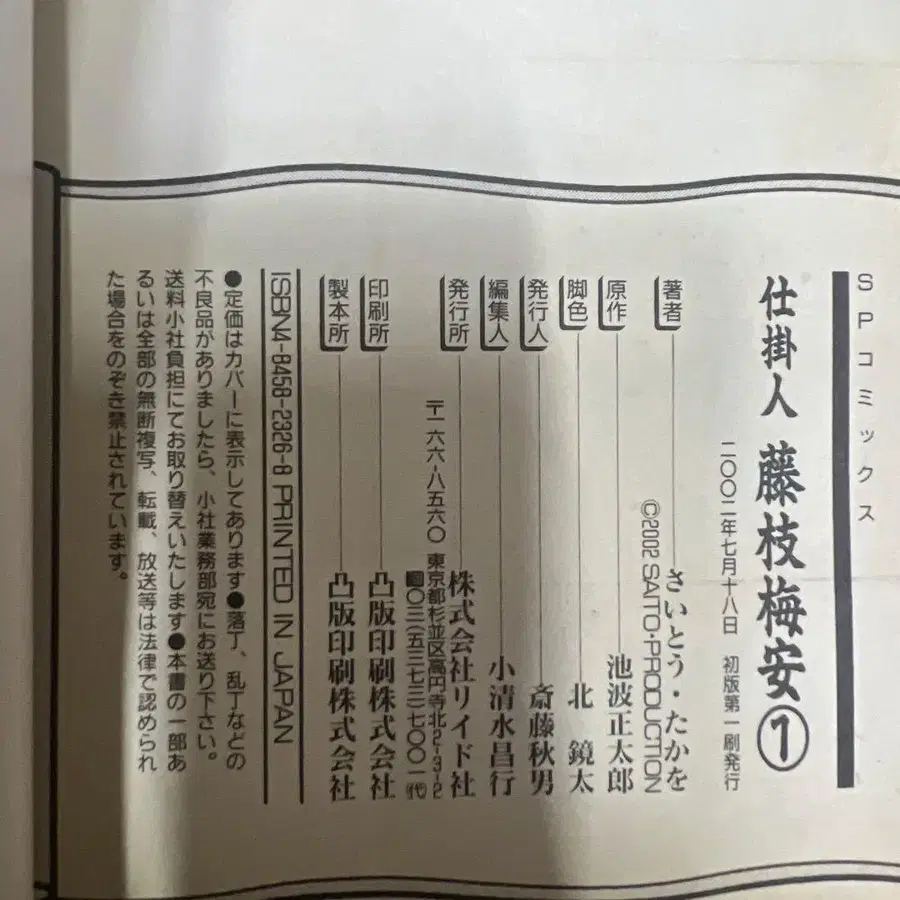 SPコミックス
仕掛人 藤枝梅安①
二〇〇二年七月十八日 初版第一刷発行
著者 さいとう・たかを
©2002 SAITO・PRODUCTION
原作 池波正太郎
脚色 北 鏡太
発行人 斎藤秋男
編集人 小清水昌行
発行所 株式会社リイド社
〒一六六-八五六〇 東京都杉並区高円寺北2-3-2
☎〇三(五三七三)七〇〇一(代)
印刷所 凸版印刷株式会社
製本所 凸版印刷株式会社
ISBN4-8458-2326-8 PRINTED IN JAPAN
●定価はカバーに表示してあります●落丁、乱丁などの
不良品がありましたら、小社業務部宛にお送り下さい。
送料小社負担にてお取り替えいたします●本書の一部あ
るいは全部の無断複写、転載、放送等は法律で認められ
た場合をのぞき禁止されています。